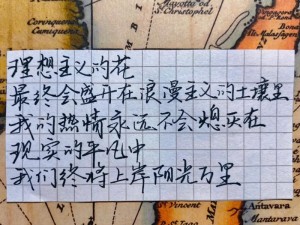 Mayotto ou
St Christophel
理想主义的花
最终会盛开在浪漫主义的土壤里
我的热情永远不会熄灭在
现实的平凡中
我们终将上岸阳光万里
Antavara
Mantarara